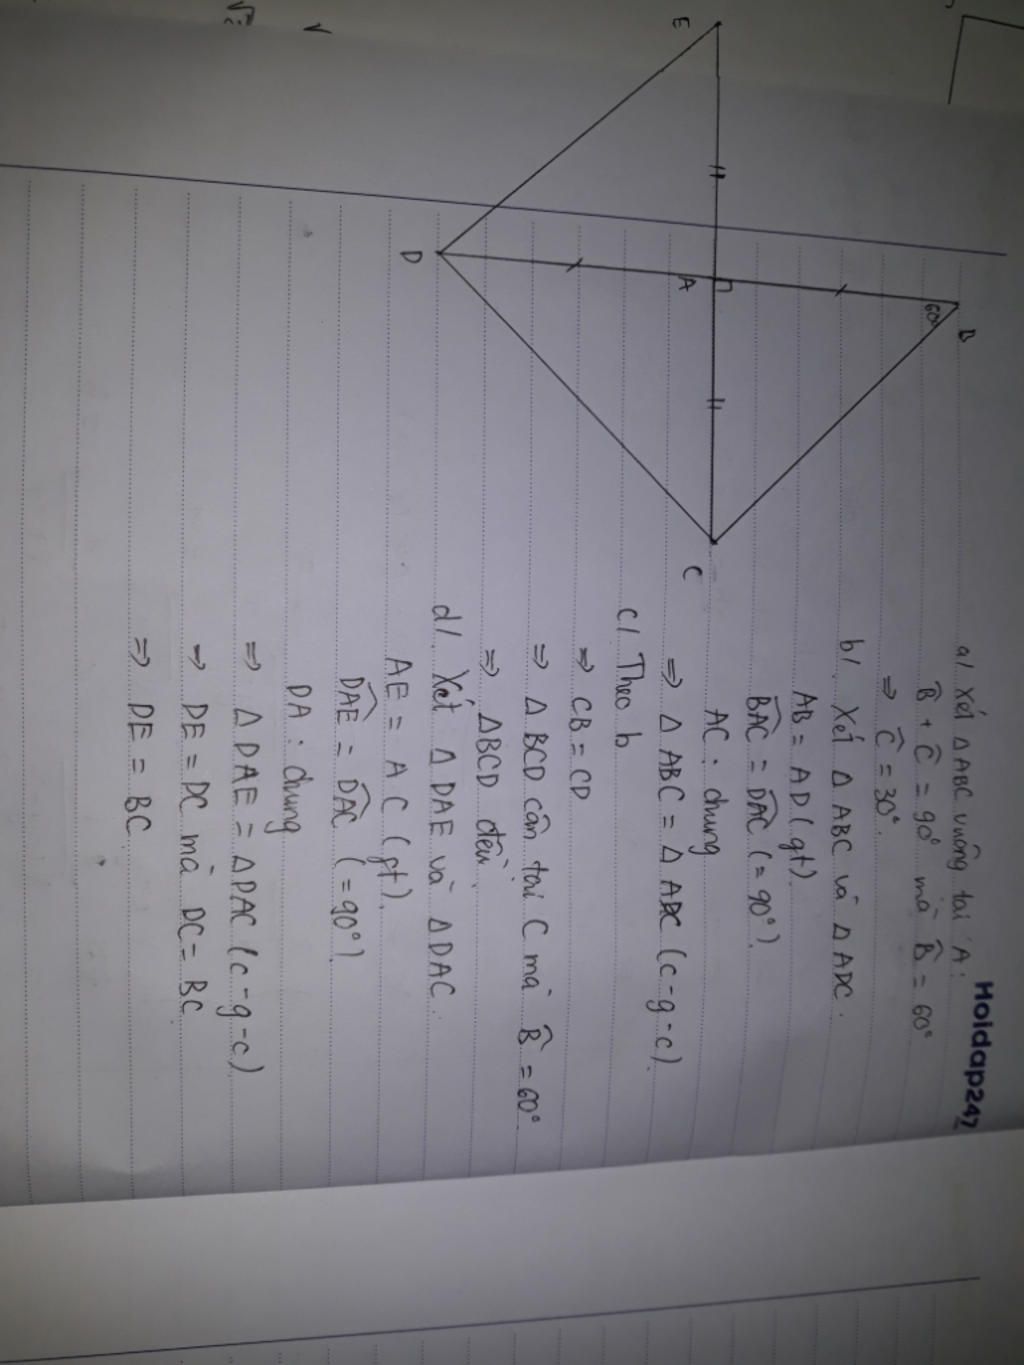 Hoidap247
a/ Xét ΔABC vuông tại A:
B̂ + Ĉ = 90° mà B̂ = 60°
⇒ Ĉ = 30°.
b/. Xét Δ ABC và Δ ADC.
AB = AD (gt).
B̂AC = D̂AC (= 90°).
AC: chung
⇒ Δ ABC = Δ ADC (c-g-c).
c/ Theo b
⇒ CB = CD
⇒ Δ BCD cân tại C mà B̂ = 60°
⇒ ΔBCD đều.
d/. Xét Δ DAE và Δ DAC.
AE = AC (gt).
D̂AE = D̂AC (= 90°)
DA: chung
⇒ Δ DAE = ΔDAC (c-g-c)
⇒ DE = DC mà DC = BC.
⇒ DE = BC.
B
60°
A
C
D
E